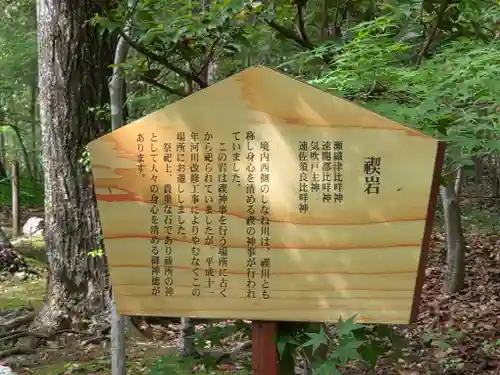 禊岩
瀬織津比咩神
速開都比咩神
気吹戸主神
速佐須良比咩神
境内西側のしなの川は、禊川とも
称し身心を清める禊の神事が行われ
ていました。
この岩は禊神事を行う場所に古く
から祀られていましたが、平成十一
年河川改修工事によりやむなくこの
場所にお遷ししました。
祭祀上、貴重な石であり蔵所の神
として人々の身心を清める御神徳が
あります。